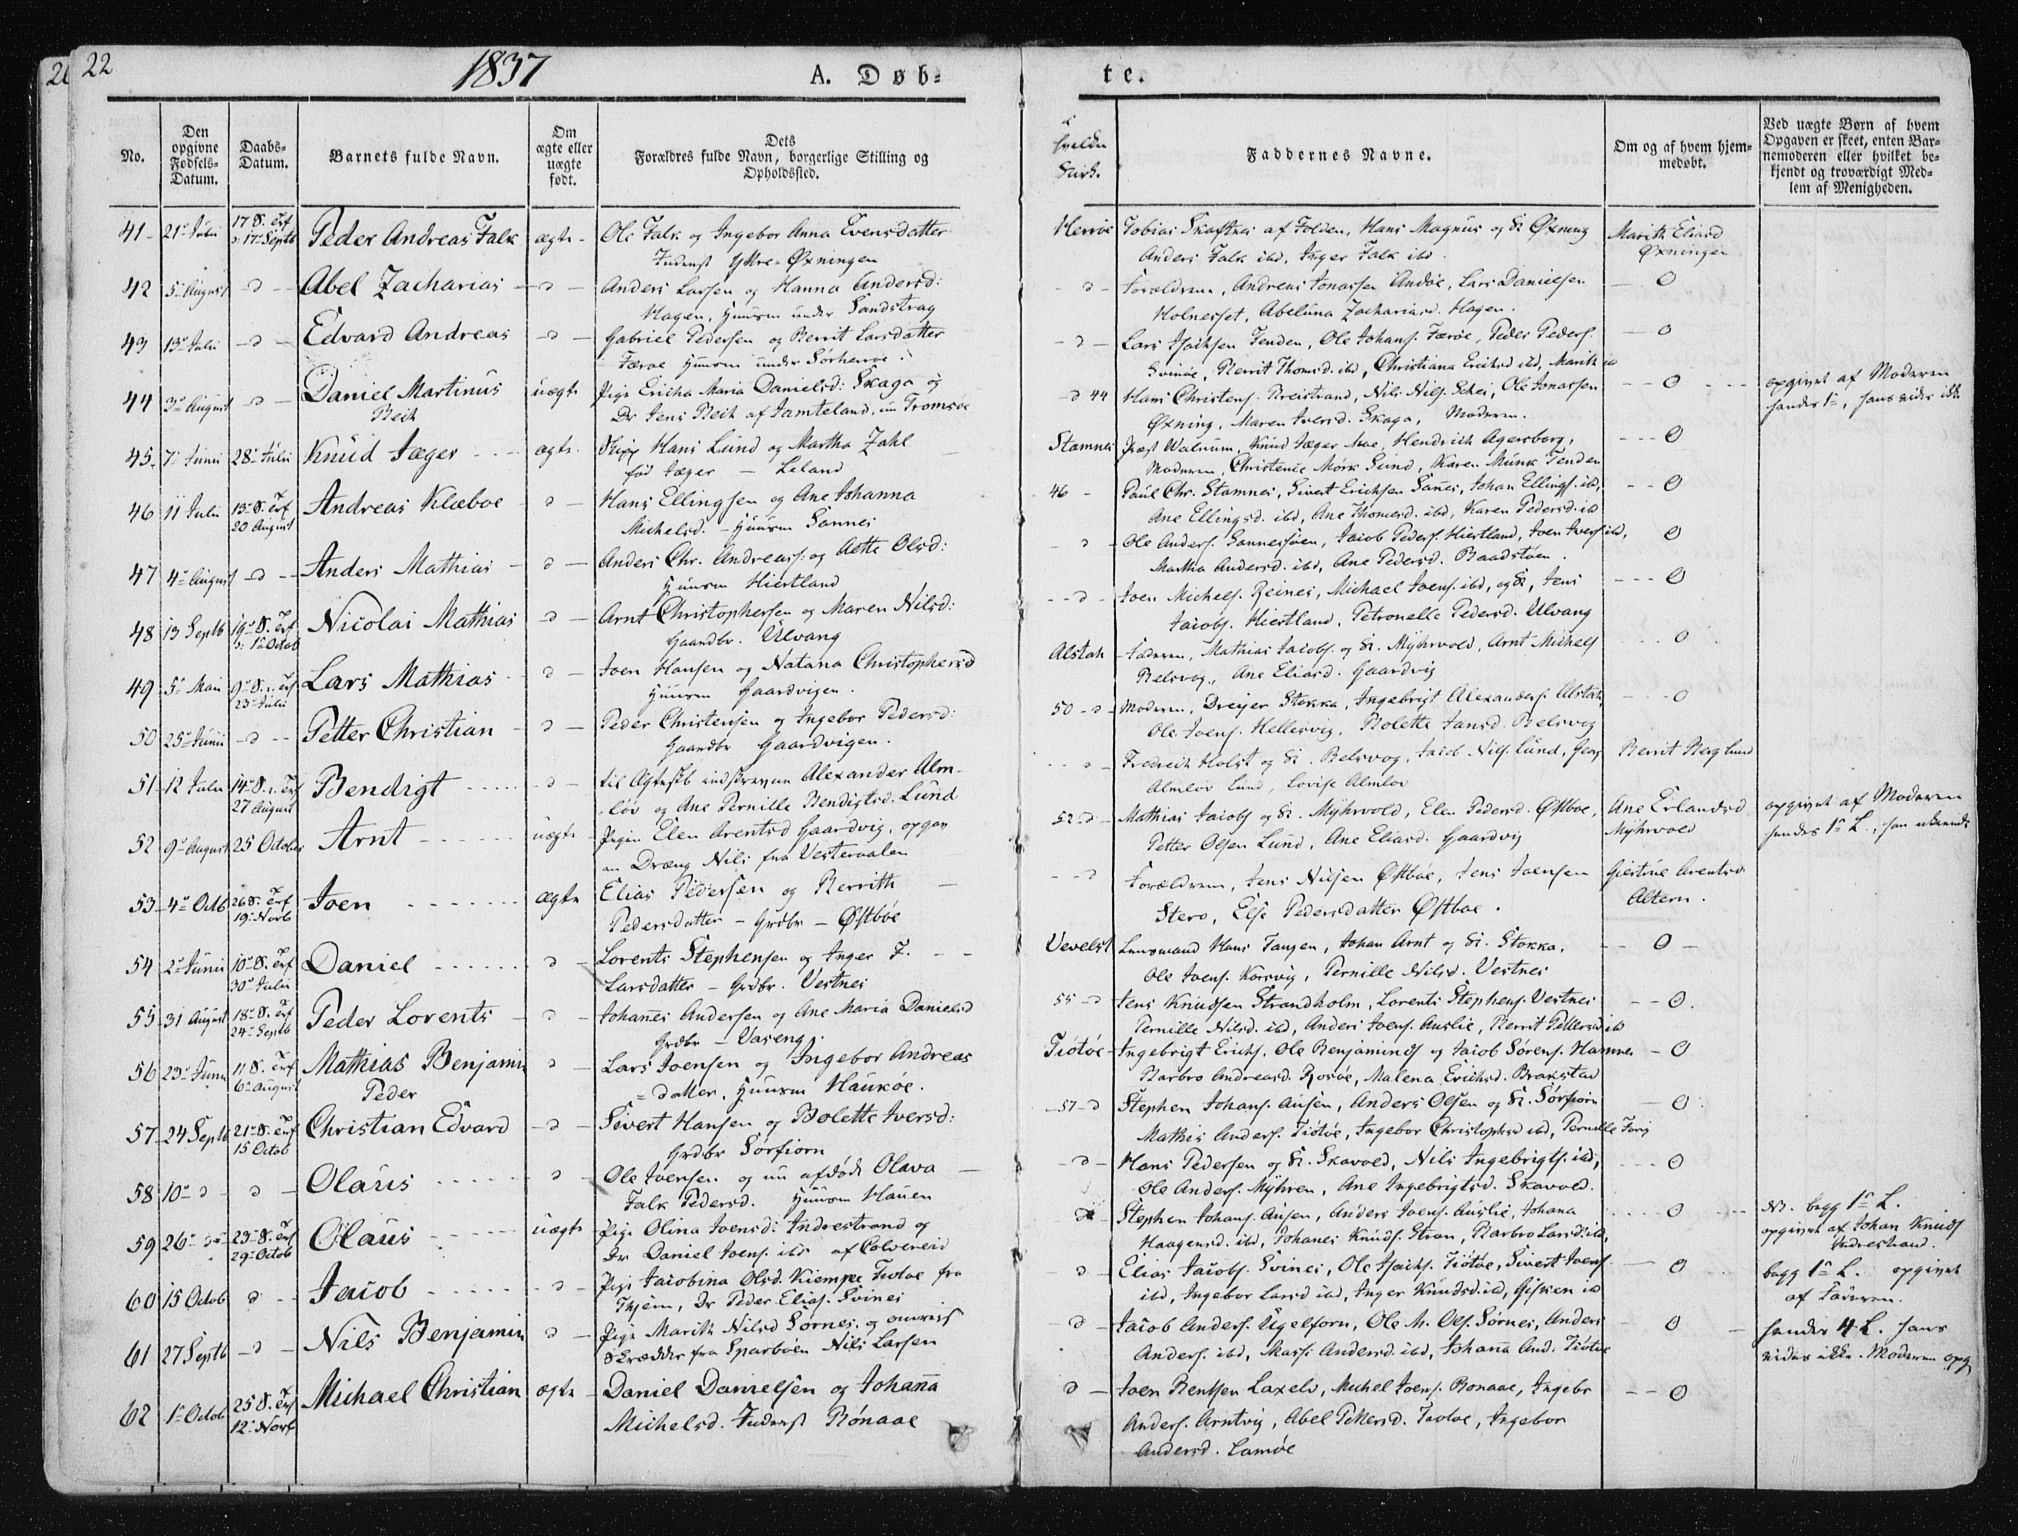 22
1837
A. Døb-
te.
No.
Den opgivne Fødsels-Datum.
Daabs-Datum.
Barnets fulde Navn.
Om ægte eller uægte født.
Dets Forældres fulde Navn, borgerlige Stilling og Opholdssted.
Faddernes Navne.
Om og af hvem hjemmedøbt.
Ved uægte Børn af hvem Opgaven er skeet, enten Barnemoderen eller hvilket bekjendt og troværdigt Medlem af Menigheden.
41 21 Julii 17 S. Trf 17 Septb Peder Andreas Falk ægte Ole Falk og Ingebor Anna Evensdatter
Yttre Øxningen
Herrøe Tobias Skaftnes af Folden, Hans Magnus og K Øxning Marith Eliasd
Anders Falk ibd, Inger Falk ibd. Øxningen
42 5 August Abel Zacharias Anders Larsen og Hanna Andersd:
Hagen, Huusm under Sandstrag
Forældrene, Andreas Jonassen Andøe, Lars Danielsen 0
Holnesset, Abeluna Zachariasd. Hagen.
43 13 Julii Edvard Andreas Gabriel Pedersen og Berrit Larsdatter
Færøe Huusm under Sørherrøe.
Lars Isachsen Tenden, Ole Johans. Færøe, Peder Peders. 0
Svinøe, Berrit Thomsd. ibd, Christiana Erichsd ibd, Marith ib
44 3 August Daniel Martinus uægte Pige Ericha Maria Danielsd: Skaga og
Beik Dr Jens Beik af Jamteland, nu Tromsøe
44 Hans Christens. Breistrand, Nils Nils. Skei, Ole Jonassen 0 opgivet af Moderen
Øxning, Maren Iversd. Skaga, Moderen. hendes 1, hans vides ikke
45 7 Junii 28 Julii Knud Jæger ægte Skipp Hans Lund og Martha Zahl
fød Jæger — Leland
Stamnes Præst Walnum, Knud Jæger, Hendrich Agersborg, 0
Moderen, Christence Mørk Lund, Karen Munk Tenden
46 11 Julii 13 S. Trf 20 August Andreas Klæboe Hans Ellingsen og Ane Johanna
Michelsd. Huusm Sannes
46 Paul Chr. Stamnes, Sivert Erichsen Sannes, Johan Ellings. ibd, 0
Ane Ellingsd. ibd, Ane Thomesd. ibd, Karen Pedersd. ib
47 4 August Anders Mathias Anders Chr. Andreass: og Aette Olsd:
Huusm Hiertland
Ole Anders. Sannessøen, Jacob Peders. Hiertland, Joen Ivers ibd, 0
Martha Andersd. ibd, Ane Pedersd. Baadstøen.
48 13 Septb 19 S. Trf 1 Octob Nicolai Mathias Arnt Christophersen og Maren Nilsd:
Gaardbr. Ulvang
Joen Michels. Reines, Michael Joens. ibd, og K, Jens 0
Jacobs. Hiertland, Petronelle Pedersd. Ulvang
49 5 Mai 9 S. Trf 23 Julii Lars Mathias Joen Hansen og Natana Christophersd
Huusm Gaardvigen.
Alstah Faderen, Mathias Jacobs. og K. Myhrvold, Arnt Michels 0
Belsvog, Ane Eliasd. Gaardvig
50 25 Junii Petter Christian Peder Christensen og Ingebor Pedersd:
Gaardbr Gaardvigen.
50 Moderen, Dreyer Stokka, Ingebrigt Alexanders. Alstah, 0
Ole Joens. Hellesvig, Bolette Jansd. Belsvog
51 12 Julii 14 S. Trf 27 August Bendigt til Ægteskb indskrevne Alexander Alm-
løv og Ane Pernille Bendigtsd. Lund
Frederik Holst og K. Belsvog, Jacob Nils. Lund, Georg Berrit Berg Lund
Almløv Lund, Lovise Almløv
52 9 August 25 October Arnt uægte Pigen Elen Arentsd Gaardvig, opgav
en Dræng Nils fra Vesteraalen
52 Mathias Jacobs og K. Myhrvold, Elen Pedersd. Østboe, Ane Erlandsd opgivet af Moderen
Petter Olsen Lund, Ane Eliasd. Gaardvig Myhrvold hendes 1 L.,
53 4 Octb 26 S. Trf 19 Novb Joen ægte Elias Pedersen og Berrith
Pedersdatter — Grdbr — Østbøe
Forældrene, Jens Nilsen Østbøe, Jens Joensen Giertrue Arentsd
Stero, Else Pedersdatter Østboe. Altern.
54 2 Junii 10 S. Trf 30 Julii Daniel Lorents Stephensen og Inger F.
Larsdatter — Grdbr. Vestnes
Vevelst Lensmand Hans Tangen, Johan Arnt og K. Stokka, 0
Ole Joens. Korsvig, Pernille Nilsd. Vestnes
55 31 August 18 S. Trf 24 Septb Peder Lorents Johannes Andersen og Ane Maria Danielsd
Grdbr — Vaseng.
55 Jens Knudsen Strandholm, Lorents Stephens. Vestnes 0
Pernille Nilsd. ibd, Anders Joens. Auslie, Berrit Pettersd ib
56 23 Junii 11 S. Trf 6 August Mathias Benjamin Lars Joensen og Ingebor Andreas
Peder datter, Huusm Haukøe.
Tiøtøe Ingebrigt Erichs. Ole Benjaminds og Jacob Sørens. Hamnes 0
Barbro Andreasd. Rosøe, Malena Erichsd. Brakstad
57 24 Septb 21 S. Trf 15 Octob Christian Edvard Sivert Hansen og Bolette Iversd:
Grdbr Sørfiorn
57 Stephen Johans. Ausen, Anders Olsen og K. Sørfiorn 0
Mathis Anders. Tiøtøe, Ingebor Christophsd ibd, Pernille
58 10 Olaus Ole Ivensen og nu afdøde Olava
Falk Pedersd. Huusm Hauen
Hans Pedersen og K. Skavold, Nils Ingebrigts. ibd, 0
Ole Anders. Myhren, Ane Ingebrigtsd. Skavold.
59 26 23 S. Trf 29 Octob Olaus uægte Pige Olina Joensd: Indrestrand og
Dr Daniel Joens. ibd af Colvereid
Stephen Johans. Ausen, Anders Joens. Auslie, Johana 0 NB. begg 1 L.
Haagensd. ibd, Johanes Knuds. Stran, Barbro Larsd. ibd, opgivet af Johan Knuds
Indrestrand.
60 15 Octob Jacob Pige Jacobina Olsd. Kiempe Tiøtøe fra
Thjem, Dr Peder Elias. Svines
Elias Jacobs. Svines, Ole Isachs. Tiøtøe, Sivert Joens. 0 begg 1 L. opgivet
ibd, Ingebor Larsd ibd, Inger Knudsd. ibd, Gisken ib af Faderen.
61 27 Septb Nils Benjamin Pige Marith Nilsd Sørnes, og omreis
Skrædder fra Sparboen Nils Larsen
Jacob Anders. Ugelforn, Ole M. Ols. Sørnes, Anders 0 hendes 4 L. hans
Anders. ibd, Massi Andersd. ibd, Johana And. Tiøtøe vides ikke. Moderen opg
62 1 Octob 25 S. Trf 12 Novb Michael Christian ægte Daniel Danielsen og Johanna
Michelsd. Inderst Rønaae
Joen Bentsen Laxelv, Michel Joens. Bonaae, Ingebr 0
Anders. Arntvig, Abel Pettersd. Tiøtøe, Ingebor
Andersd. Lamøe